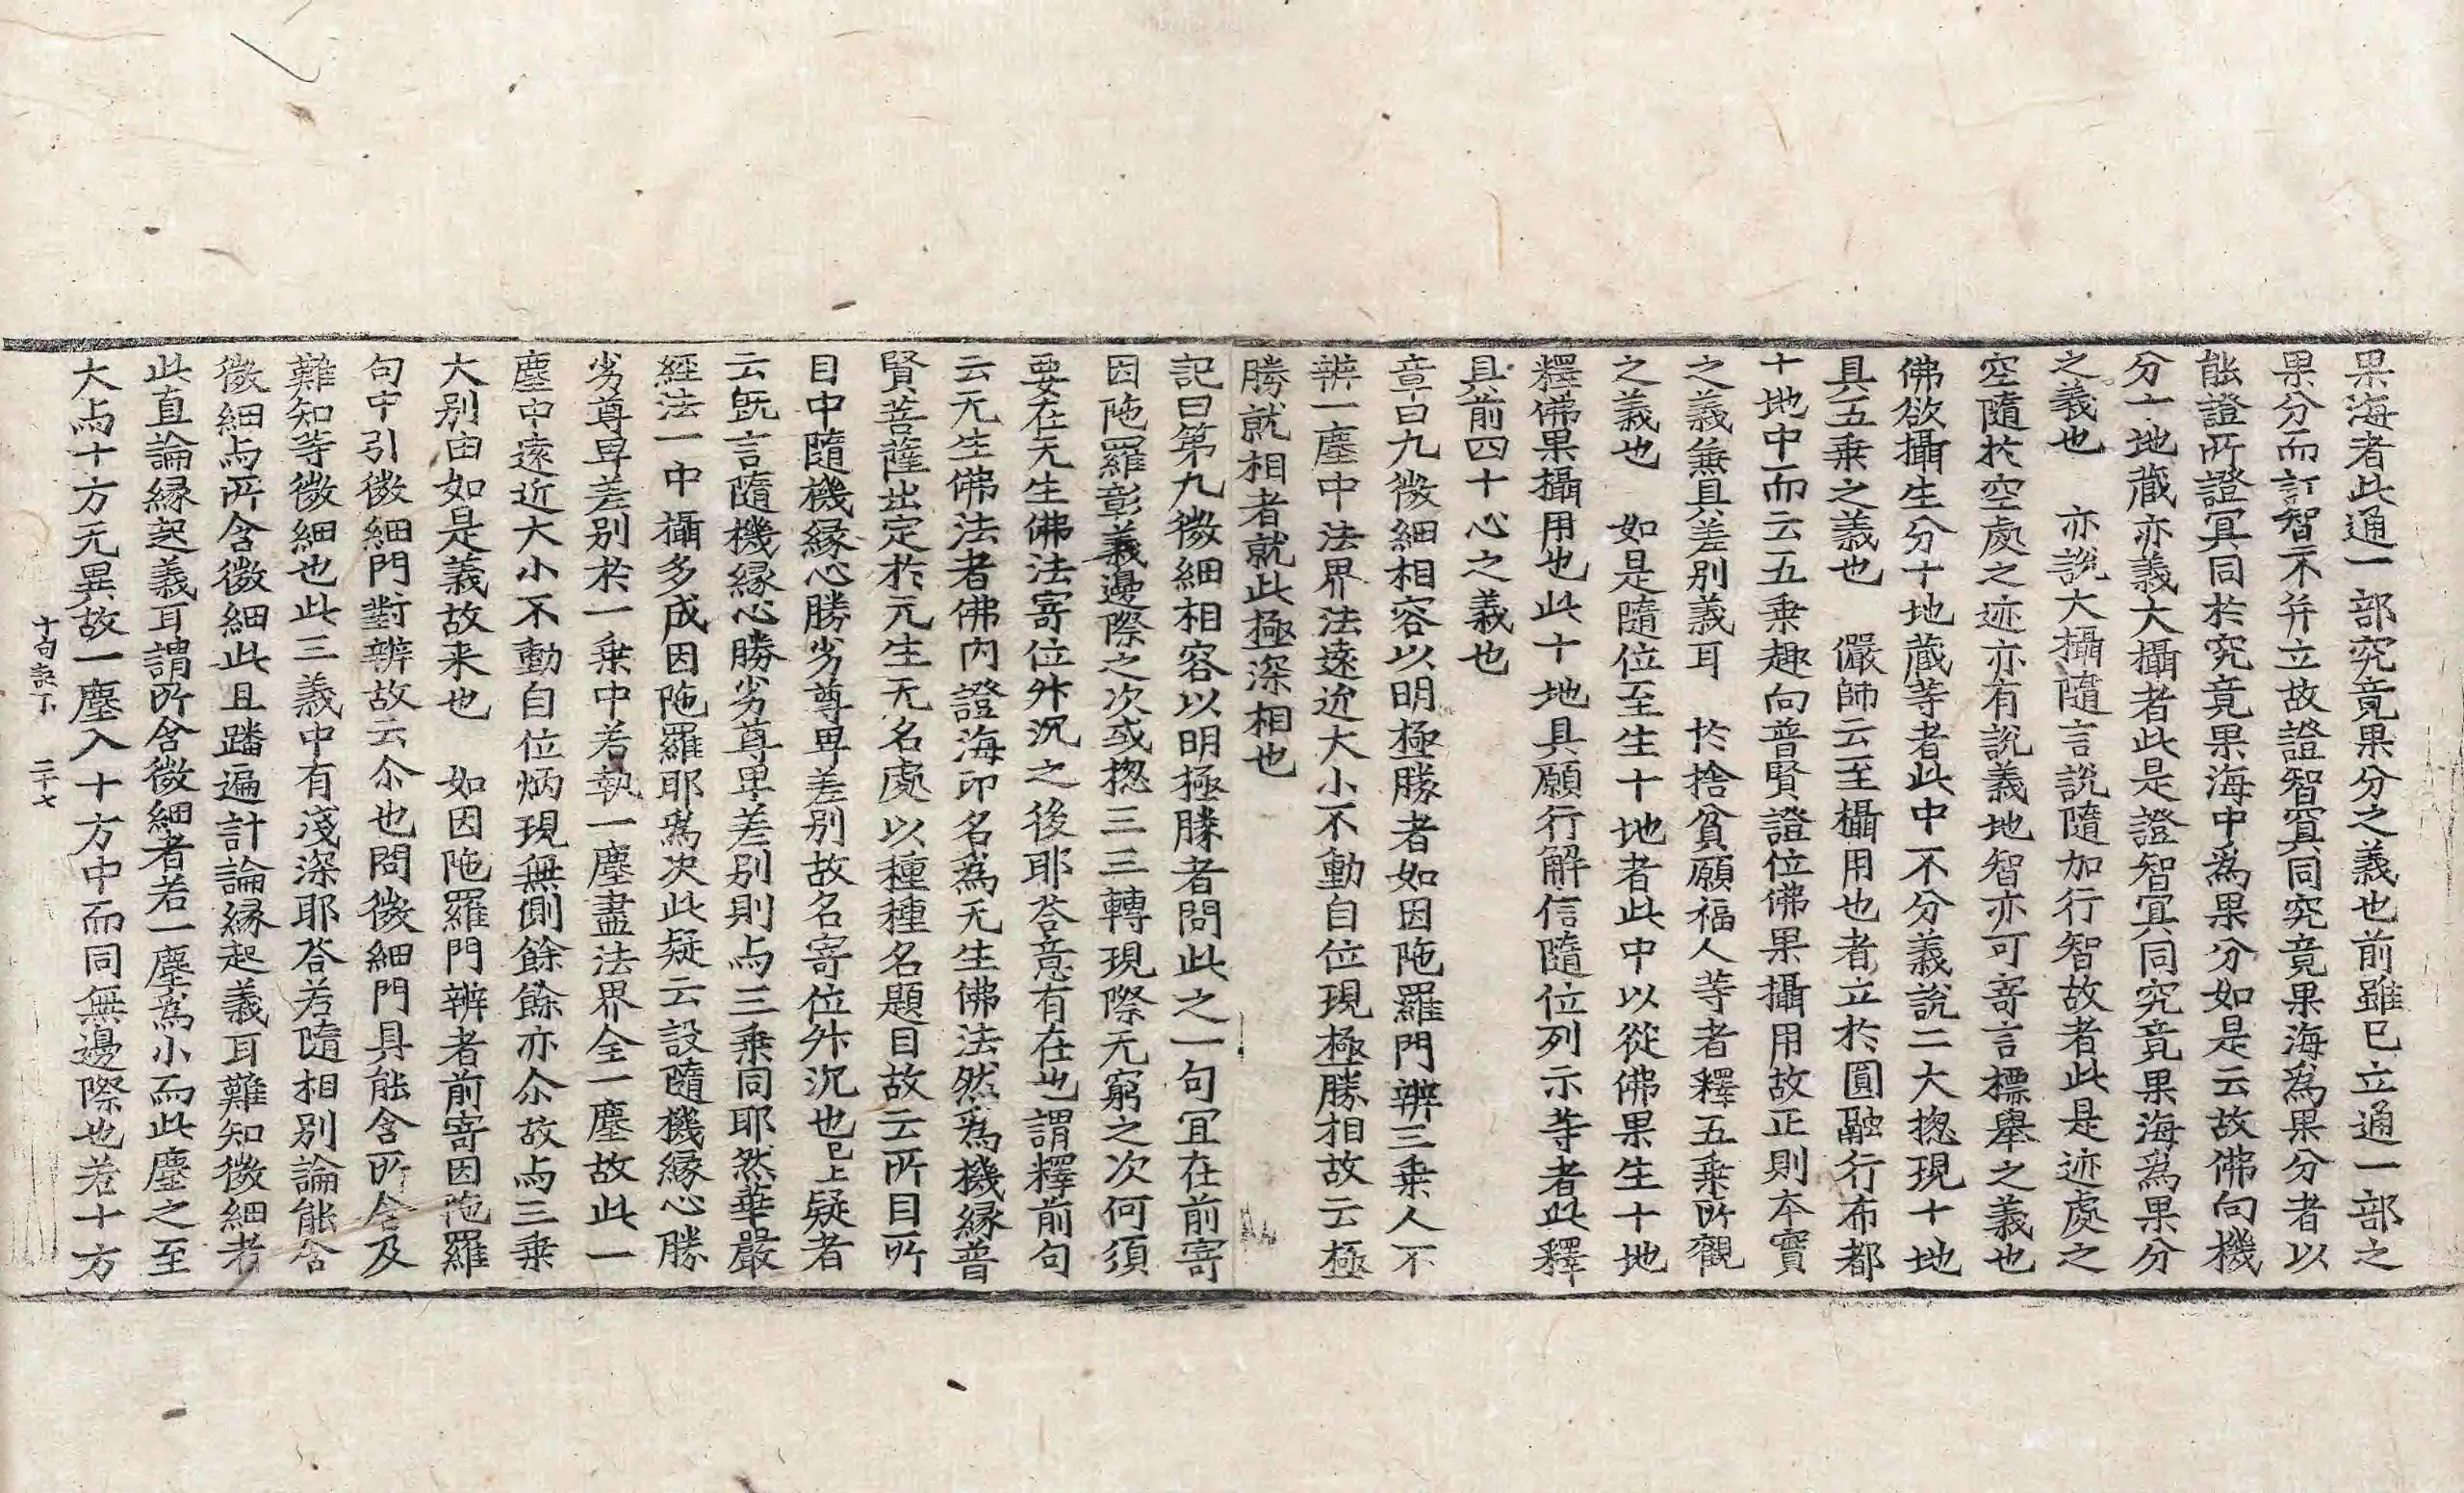 果海者此通一部究竟果分之義也前雖已立通一部之
果分而訂智不并立故證智冥同究竟果海爲果分者以
能證所證冥同於究竟果海中爲果分如是云故佛向機
分十地藏亦義大攝者此是證智冥同究竟果海爲果分
之義也 亦說大攝隨言說隨加行智故者此是迹處之
空隨於空處之迹亦有說義地智亦可寄言標擧之義也
佛欲攝生分十地蔵等者此中不分義說二大捴現十地
具五乗之義也 儼師云至攝用也者立於圓融行布都
十地中而云五乗趣向普賢證位佛果攝用故正則本實
之義無具差别義耳 於捨貧願福人等者釋五乗所觀
之義也 如是隨位至生十地者此中以從佛果生十地
釋佛果攝用也此十地具願行解信隨位列示等者此釋
具前四十心之義也
章曰九微細相容以明極勝者如因陁羅門辨三乗人不
辨一塵中法界法遠近大小不動自位現極勝相故云極
勝就相者就此極深相也
記曰第九微細相容以明極勝者問此之一句冝在前寄
因陁羅彰義邊際之次或捴三三轉現際无窮之次何須
要在无生佛法寄位外沉之後耶荅意有在也謂釋前句
云无生佛法者佛内證海印名爲无生佛法然爲機緣普
賢菩薩出定於无生无名處以種種名題目故云所目所
目中隨機緣心勝劣尊卑差别故名寄位升沉也已上疑者
云旣言隨機緣心勝劣尊卑差别則与三乗同耶然華嚴
經法一中攝多成因陁羅耶爲决此疑云設隨機緣心勝
劣尊卑差别於一乗中若執一塵盡法界全一塵故此一
塵中遠近大小不動自位炳現無側餘餘亦尒故与三乗
大别由如是義故来也 如因陁羅門辨者前寄因陁羅
句中引微細門對辨故云尒也問微細門具能含所含及
難知等微細也此三義中有淺深耶荅若隨相别論能含
微細与所含微細此且蹯遍計論緣起義耳難知微細者
此直論緣起義耳謂所含微細者若一塵爲小而此塵之至
大与十方无異故一塵入十方中而同無邊際也若十方
十句訣下 二十七